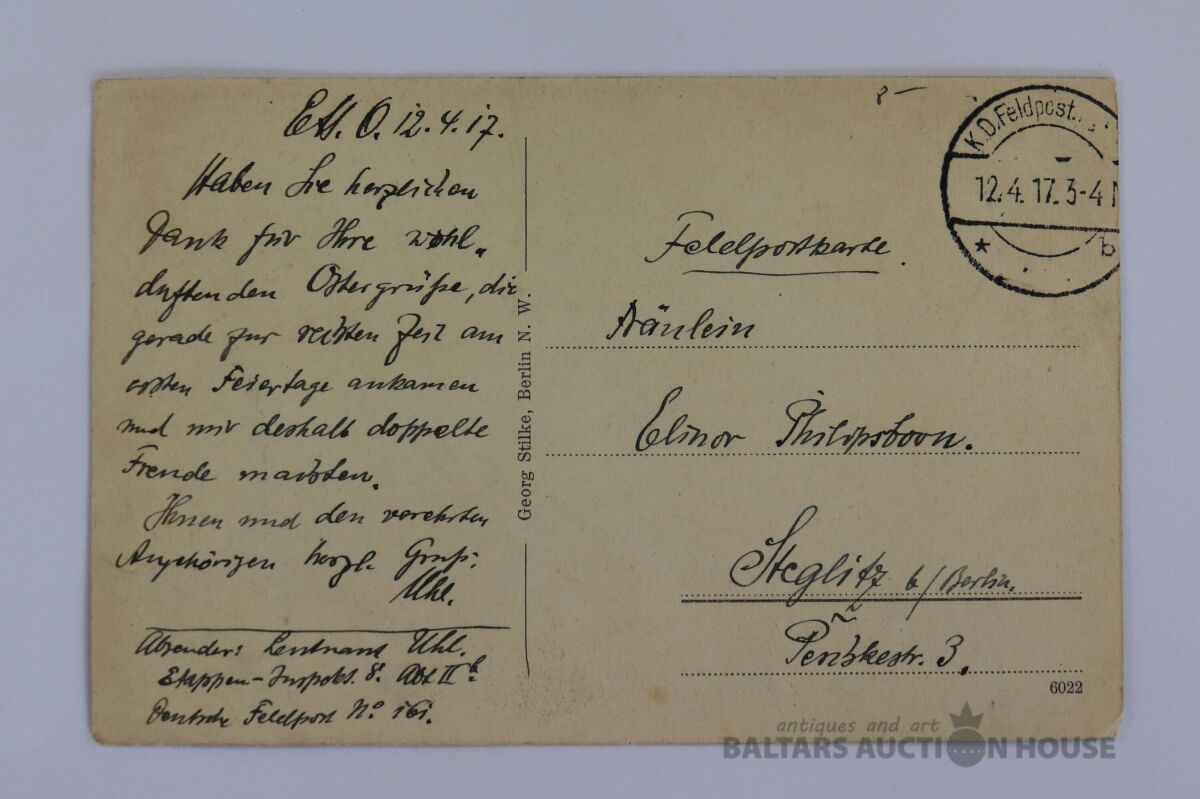 Ett. O. 12.4.17.
Haben Sie herzlichen
Dank für Ihre wohl-
duftenden Ostergrüße, die
gerade zur rechten Zeit am
ersten Feiertage ankamen
und mir deshalb doppelte
Freude machten.
Ihnen und den verehrten
Angehörigen herzl. Gruß:
Uhl.
Absender: Leutnant Uhl.
Etappen-Inspekt. 8. Abt II b
Deutsche Feldpost No 161.
Georg Stilke, Berlin N. W.
8-
K.D.Feldpost
12.4.17. 3-4 N
* b
Feldpostkarte.
Fräulein
Elinor Philipsborn.
Steglitz b/Berlin.
Peschkestr. 3.
6022
antiques and art
BALTARS AUCTION HOUSE